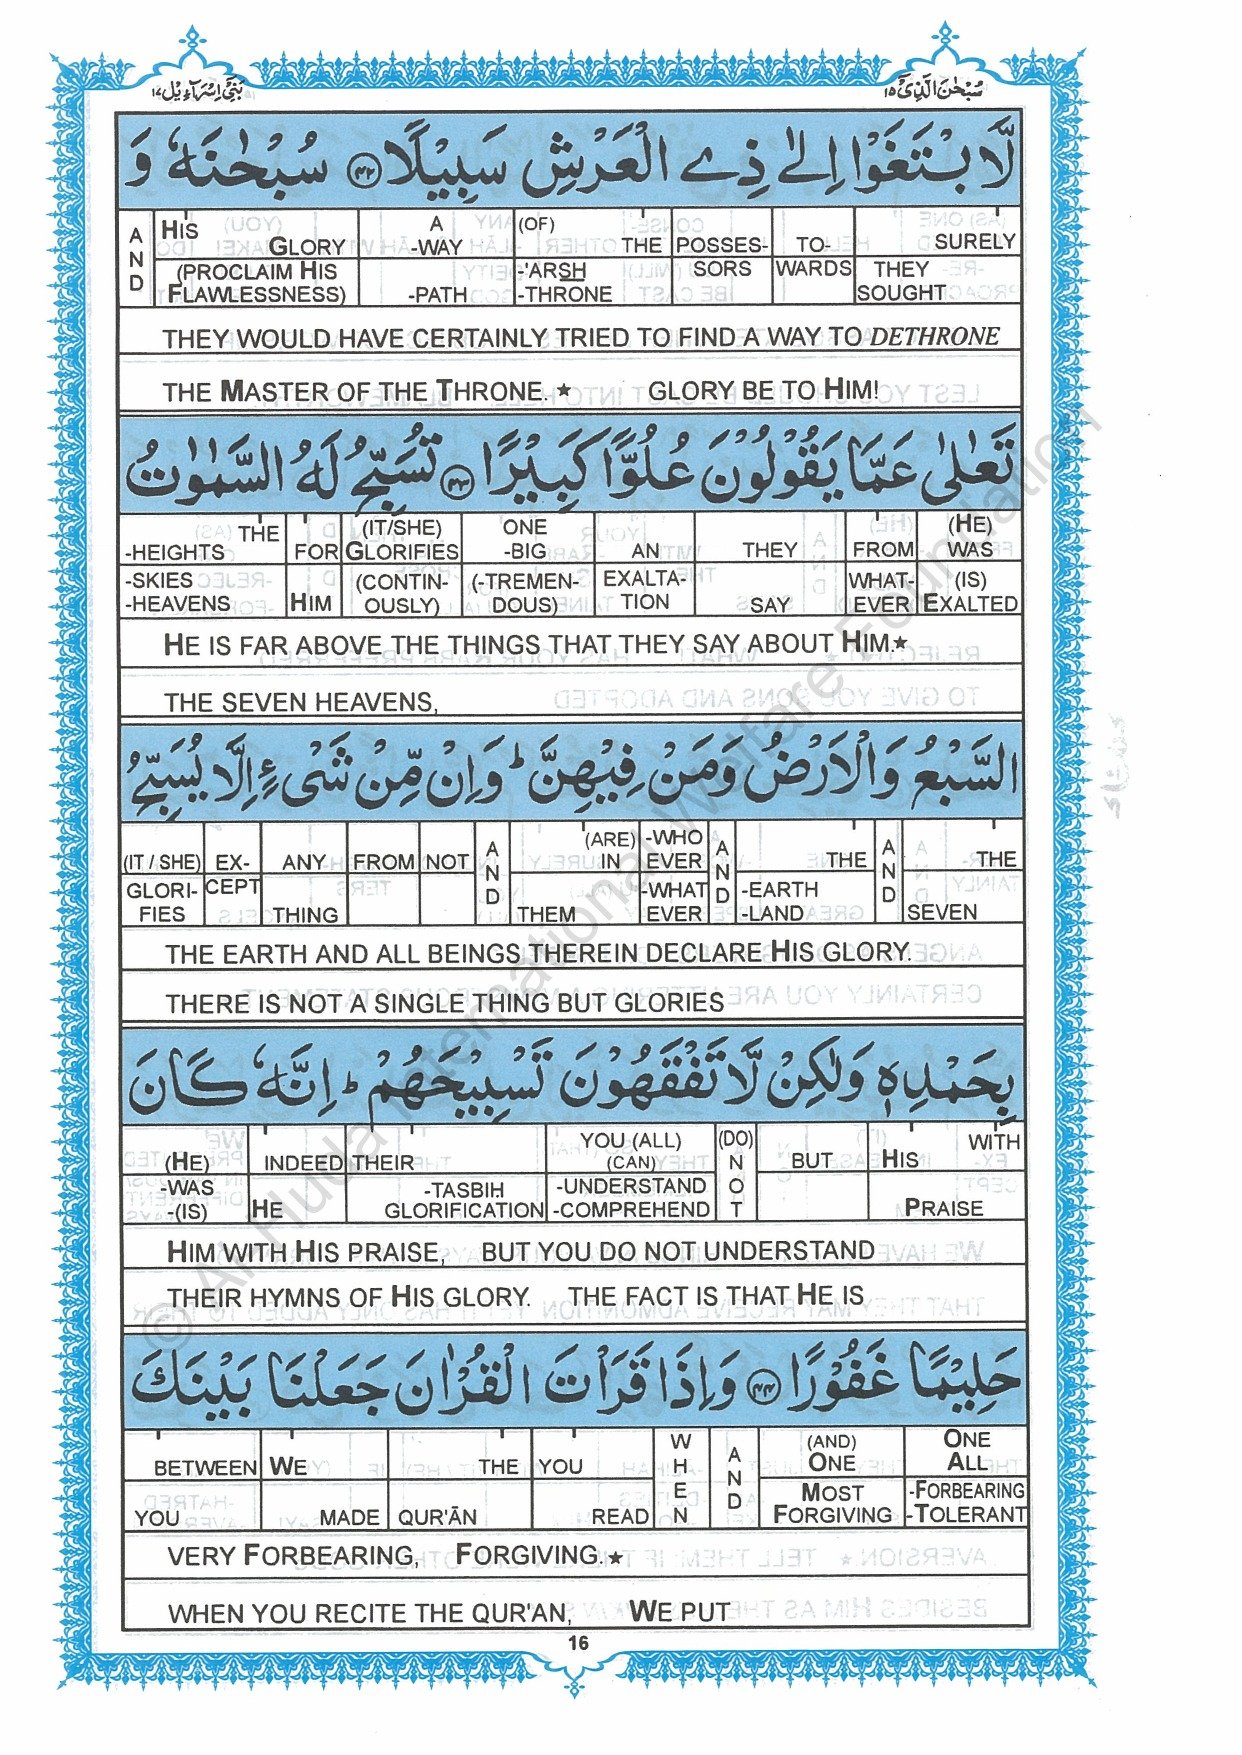 بَنِيْٓ اِسْرَآءِيْل ١٧ سُبْحٰنَ الَّذِيْٓ ١٥
لَّا بْتَغَوْا اِلٰى ذِي الْعَرْشِ سَبِيْلًا ﴿٤٢﴾ سُبْحٰنَهٗ وَ
AND | HIS GLORY | A -WAY | (OF) THE | POSSES- | TO- | SURELY
(PROCLAIM HIS FLAWLESSNESS) | -PATH | -'ARSH -THRONE | SORS | WARDS | THEY SOUGHT
THEY WOULD HAVE CERTAINLY TRIED TO FIND A WAY TO DETHRONE
THE MASTER OF THE THRONE.★ GLORY BE TO HIM!
تَعٰلٰى عَمَّا يَقُوْلُوْنَ عُلُوًّا كَبِيْرًا ﴿٤٣﴾ تُسَبِّحُ لَهُ السَّمٰوٰتُ
THE -HEIGHTS | FOR | (IT/SHE) GLORIFIES | ONE -BIG | AN | THEY | FROM | (HE) WAS
-SKIES -HEAVENS | HIM | (CONTIN- OUSLY) | (-TREMEN- DOUS) | EXALTA- TION | SAY | WHAT- EVER | (IS) EXALTED
HE IS FAR ABOVE THE THINGS THAT THEY SAY ABOUT HIM.★
THE SEVEN HEAVENS,
السَّبْعُ وَالْاَرْضُ وَمَنْ فِيْهِنَّ ؕ وَاِنْ مِّنْ شَىْءٍ اِلَّا يُسَبِّحُ
(IT / SHE) | EX- | ANY | FROM | NOT | AND | (ARE) IN | -WHO EVER | AND | THE | AND | THE
GLORI- FIES | CEPT | THING | THEM | -WHAT EVER | -EARTH -LAND | SEVEN
THE EARTH AND ALL BEINGS THEREIN DECLARE HIS GLORY.
THERE IS NOT A SINGLE THING BUT GLORIES
بِحَمْدِهٖ وَلٰكِنْ لَّا تَفْقَهُوْنَ تَسْبِيْحَهُمْ ؕ اِنَّهٗ كَانَ
(HE) | INDEED | THEIR | YOU (ALL) (CAN) | (DO) NOT | BUT | HIS | WITH
-WAS -(IS) | HE | -TASBIH GLORIFICATION | -UNDERSTAND -COMPREHEND | PRAISE
HIM WITH HIS PRAISE, BUT YOU DO NOT UNDERSTAND
THEIR HYMNS OF HIS GLORY. THE FACT IS THAT HE IS
حَلِيْمًا غَفُوْرًا ﴿٤٤﴾ وَاِذَا قَرَاْتَ الْقُرْاٰنَ جَعَلْنَا بَيْنَكَ
BETWEEN | WE | THE | YOU | WHEN | AND | (AND) ONE | ONE ALL
YOU | MADE | QUR'ĀN | READ | MOST FORGIVING | -FORBEARING -TOLERANT
VERY FORBEARING, FORGIVING.★
WHEN YOU RECITE THE QUR'AN, WE PUT
16
© Al Huda International Welfare Foundation